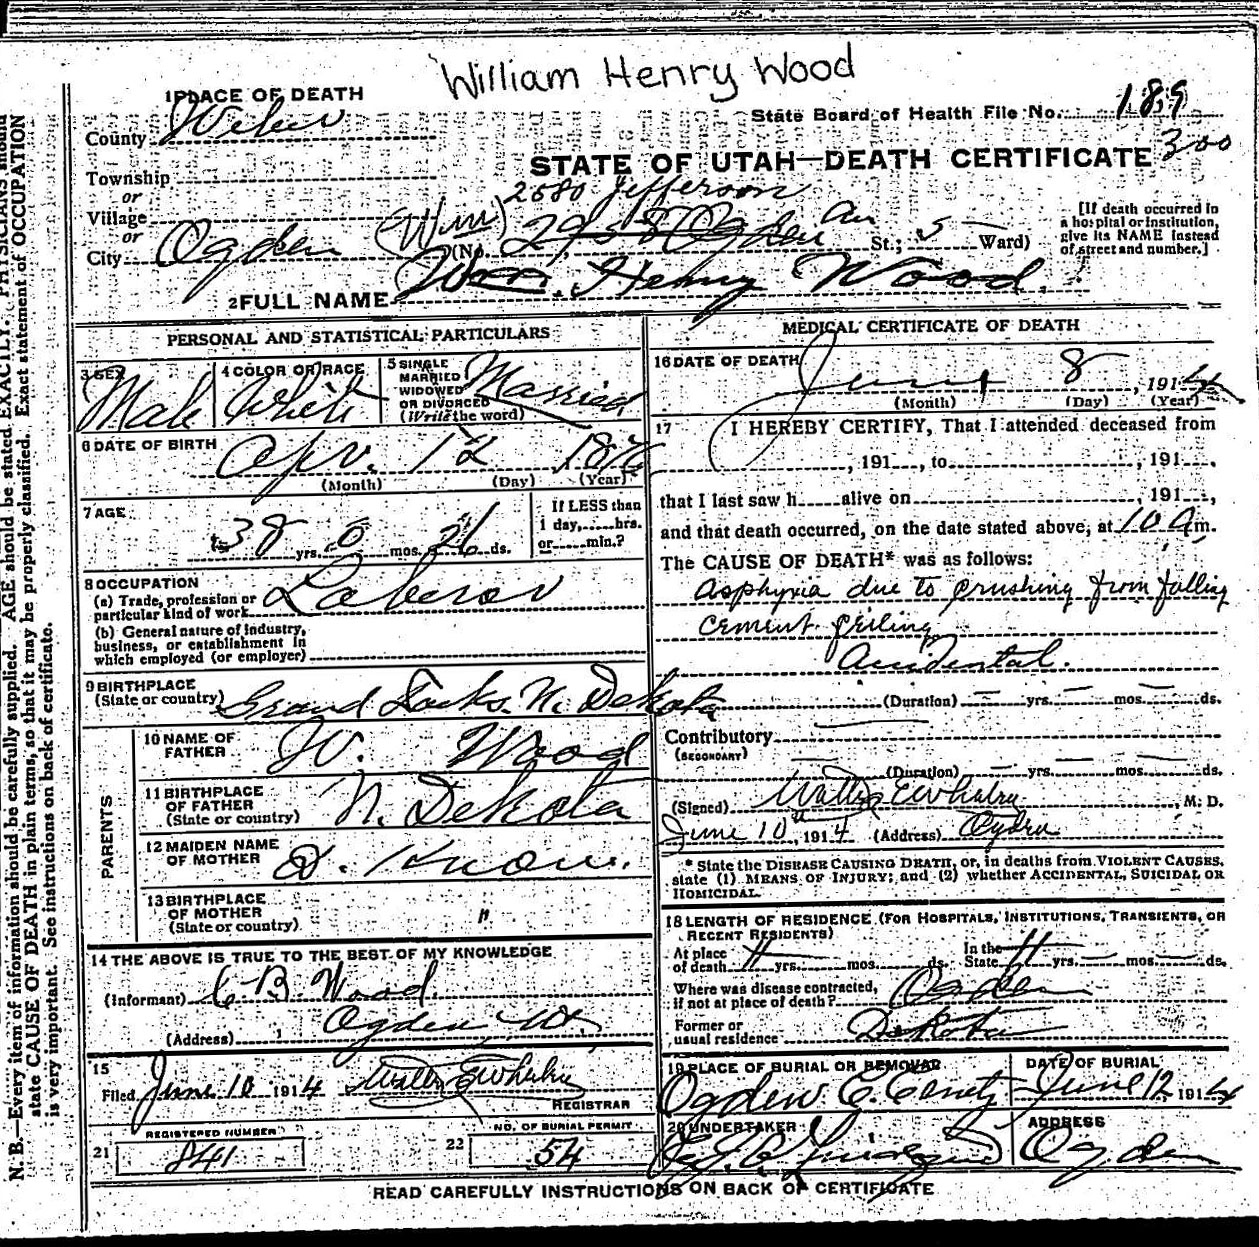 William Henry Wood
1 PLACE OF DEATH
County Weber
State Board of Health File No. 189
300
STATE OF UTAH—DEATH CERTIFICATE
Township
or
Village
or
City Ogden
2580 Jefferson
(Wm)
(No. 2958 Ogden Av St.; 5 Ward)
[If death occurred in
a hospital or institution,
give its NAME instead
of street and number.]
2 FULL NAME Wm. Henry Wood
PERSONAL AND STATISTICAL PARTICULARS
3 SEX Male
4 COLOR OR RACE White
5 SINGLE
MARRIED
WIDOWED
OR DIVORCED
(Write the word)
Married
6 DATE OF BIRTH
Apr. 12 1876
(Month) (Day) (Year)
7 AGE
38 yrs. 0 mos. 26 ds.
If LESS than
1 day,......hrs.
or......min.?
8 OCCUPATION
(a) Trade, profession or
particular kind of work Laboror
(b) General nature of industry,
business, or establishment in
which employed (or employer)
9 BIRTHPLACE
(State or country) Grand Forks. N. Dekota
PARENTS
10 NAME OF
FATHER W. Wood
11 BIRTHPLACE
OF FATHER
(State or country) N. Dekota
12 MAIDEN NAME
OF MOTHER D. Know.
13 BIRTHPLACE
OF MOTHER
(State or country) "
14 THE ABOVE IS TRUE TO THE BEST OF MY KNOWLEDGE
(Informant) C. B. Wood.
(Address) Ogden Ut,
15
Filed June 10 1914 Walter E Whalen
REGISTRAR
REGISTERED NUMBER
21 841
NO. OF BURIAL PERMIT
22 54
MEDICAL CERTIFICATE OF DEATH
16 DATE OF DEATH
June 8, 1914
(Month) (Day) (Year)
17 I HEREBY CERTIFY, That I attended deceased from
, 191..., to , 191...,
that I last saw h......alive on , 191...,
and that death occurred, on the date stated above, at 10 A m.
The CAUSE OF DEATH* was as follows:
Asphyxia due to crushing from falling
cement ceiling
Accidental.
(Duration) — yrs. — mos. — ds.
Contributory
(SECONDARY)
(Duration) — yrs. mos. ds.
(Signed) Walter E Whalen M. D.
June 10th, 1914 (Address) Ogden
* State the DISEASE CAUSING DEATH, or, in deaths from VIOLENT CAUSES,
state (1) MEANS OF INJURY; and (2) whether ACCIDENTAL, SUICIDAL OR
HOMICIDAL.
18 LENGTH OF RESIDENCE (FOR HOSPITALS, INSTITUTIONS, TRANSIENTS, OR
RECENT RESIDENTS)
At place
of death yrs. mos. ds.
In the
State yrs. mos. ds.
Where was disease contracted,
if not at place of death? Ogden
Former or
usual residence Dekota
19 PLACE OF BURIAL OR REMOVAL
Ogden C. Cemety
DATE OF BURIAL
June 12 1914
20 UNDERTAKER
ADDRESS
Ogden
READ CAREFULLY INSTRUCTIONS ON BACK OF CERTIFICATE
N. B.—Every item of information should be carefully supplied. AGE should be stated EXACTLY. PHYSICIANS should
state CAUSE OF DEATH in plain terms, so that it may be properly classified. Exact statement of OCCUPATION
is very important. See instructions on back of certificate.